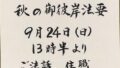 秋の御彼岸法要
9月24日(日)
13時半より
ご法話 住職